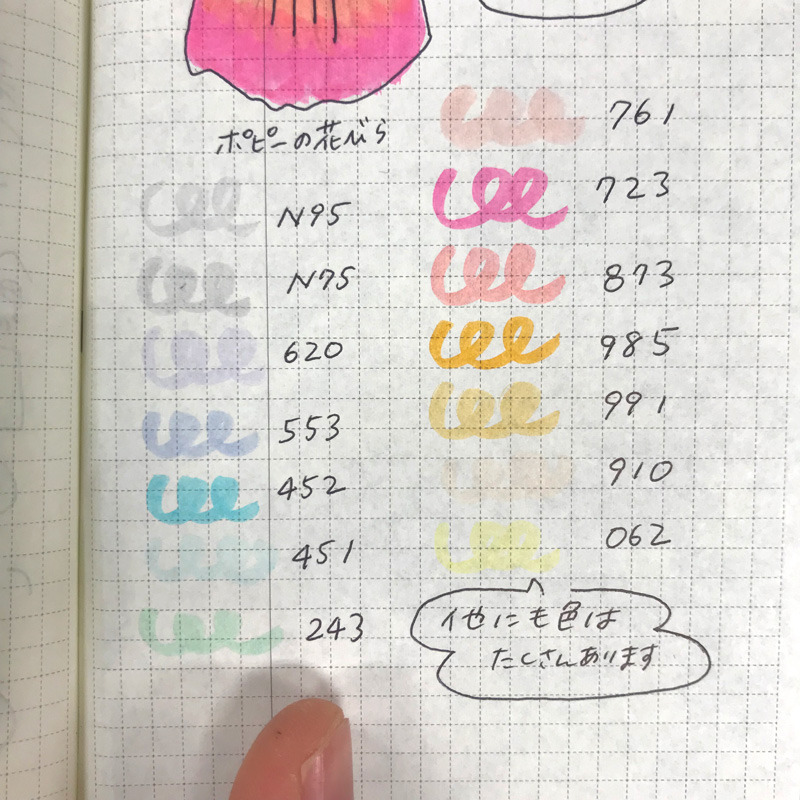 ポピーの花びら
N95
N75
620
553
452
451
243
761
723
873
985
991
910
062
他にも色は
たくさんあります